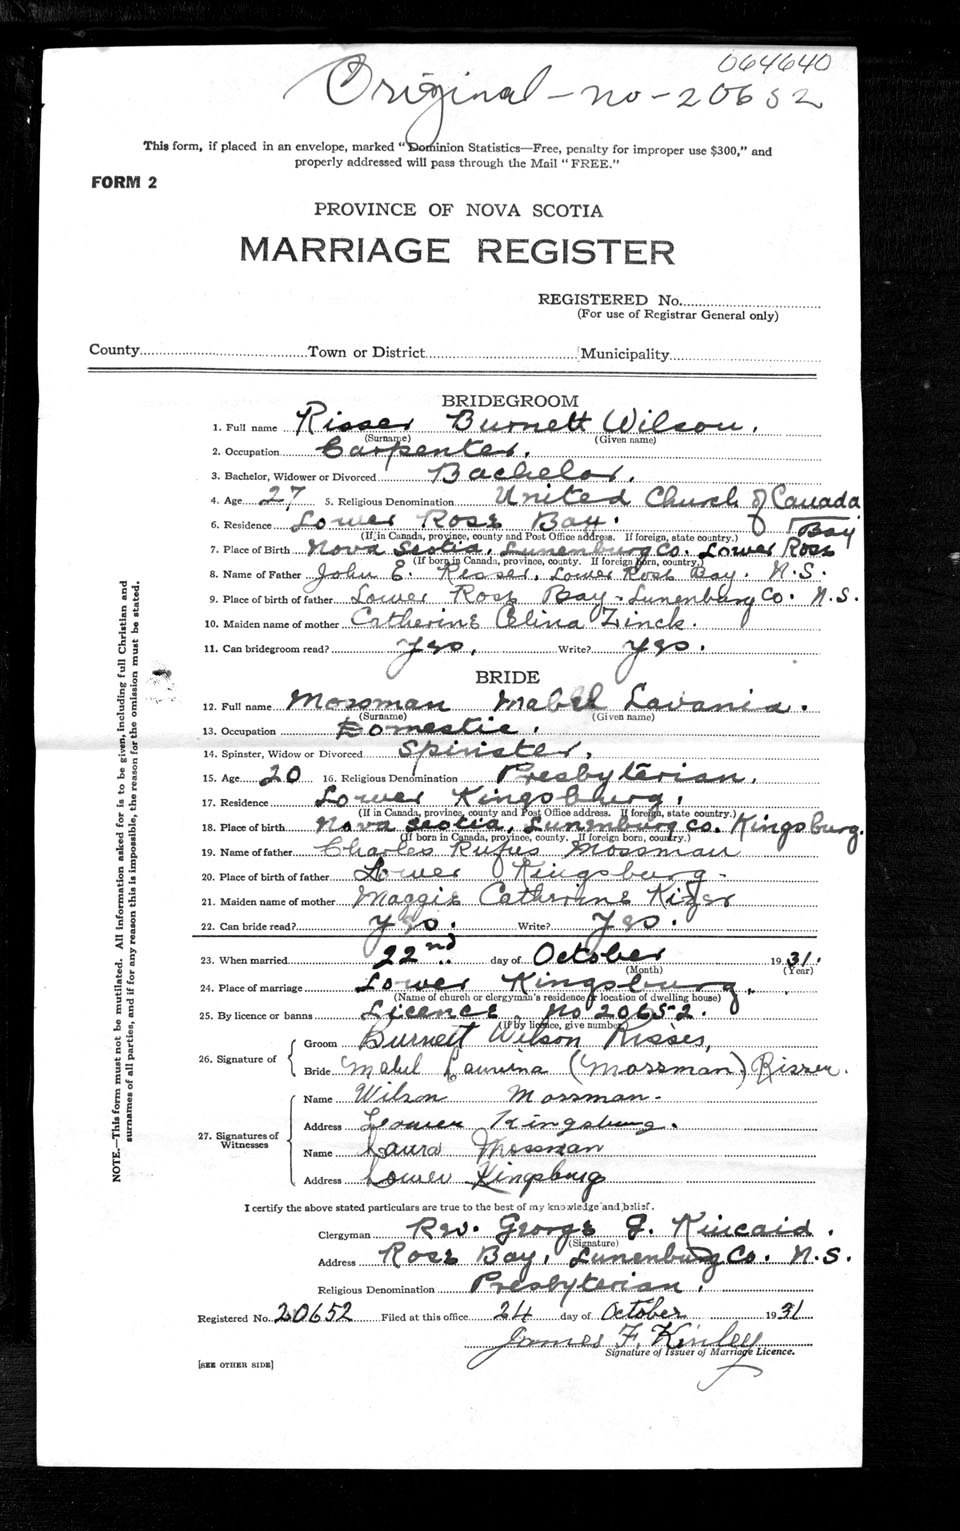 064640
Original - no - 20652
This form, if placed in an envelope, marked "Dominion Statistics—Free, penalty for improper use $300," and
properly addressed will pass through the Mail "FREE."
FORM 2
PROVINCE OF NOVA SCOTIA
MARRIAGE REGISTER
REGISTERED No.
(For use of Registrar General only)
County Town or District Municipality
BRIDEGROOM
1. Full name Risser Burnett Wilson.
(Surname) (Given name)
2. Occupation Carpenter.
3. Bachelor, Widower or Divorced Bachelor.
4. Age 27 5. Religious Denomination United Church of Canada
6. Residence Lower Rose Bay.
(If in Canada, province, county and Post Office address. If foreign, state country.)
7. Place of Birth Nova Scotia, Lunenburg Co. Lower Rose Bay
(If born in Canada, province, county. If foreign born, country.)
8. Name of Father John E. Risser, Lower Rose Bay. N.S.
9. Place of birth of father Lower Rose Bay - Lunenburg Co. N.S.
10. Maiden name of mother Catherine Celina Zinck.
11. Can bridegroom read? Yes, Write? Yes.
BRIDE
12. Full name Mossman Mabel Lavania.
(Surname) (Given name)
13. Occupation Domestic.
14. Spinster, Widow or Divorced Spinster,
15. Age 20 16. Religious Denomination Presbyterian.
17. Residence Lower Kingsburg,
(If in Canada, province, county and Post Office address. If foreign, state country.)
18. Place of birth Nova Scotia, Lunenburg Co. Kingsburg.
(If born in Canada, province, county. If foreign born, country.)
19. Name of father Charles Rufus Mossman
20. Place of birth of father Lower Kingsburg -
21. Maiden name of mother Maggie Catherine Kizer
22. Can bride read? Yes. Write? Yes.
23. When married 22nd day of October 1931.
(Month) (Year)
24. Place of marriage Lower Kingsburg.
(Name of church or clergyman's residence or location of dwelling house)
25. By licence or banns Licence, no 20652.
(If by licence, give number)
26. Signature of
Groom Burnett Wilson Risser,
Bride Mabel (Mossman) Risser.
27. Signatures of Witnesses
Name Wilson Mossman.
Address Lower Kingsburg.
Name Laura Mossman
Address Lower Kingsburg
I certify the above stated particulars are true to the best of my knowledge and belief.
Clergyman Rev. George J. Kincaid.
(Signature)
Address Rose Bay, Lunenburg Co. N.S.
Religious Denomination Presbyterian.
Registered No. 20652 Filed at this office 24 day of October 1931
James F. Kinley
Signature of Issuer of Marriage Licence.
[SEE OTHER SIDE]
NOTE.—This form must not be mutilated. All information asked for is to be given, including full Christian and
surnames of all parties, and if for any reason this is impossible, the reason for the omission must be stated.